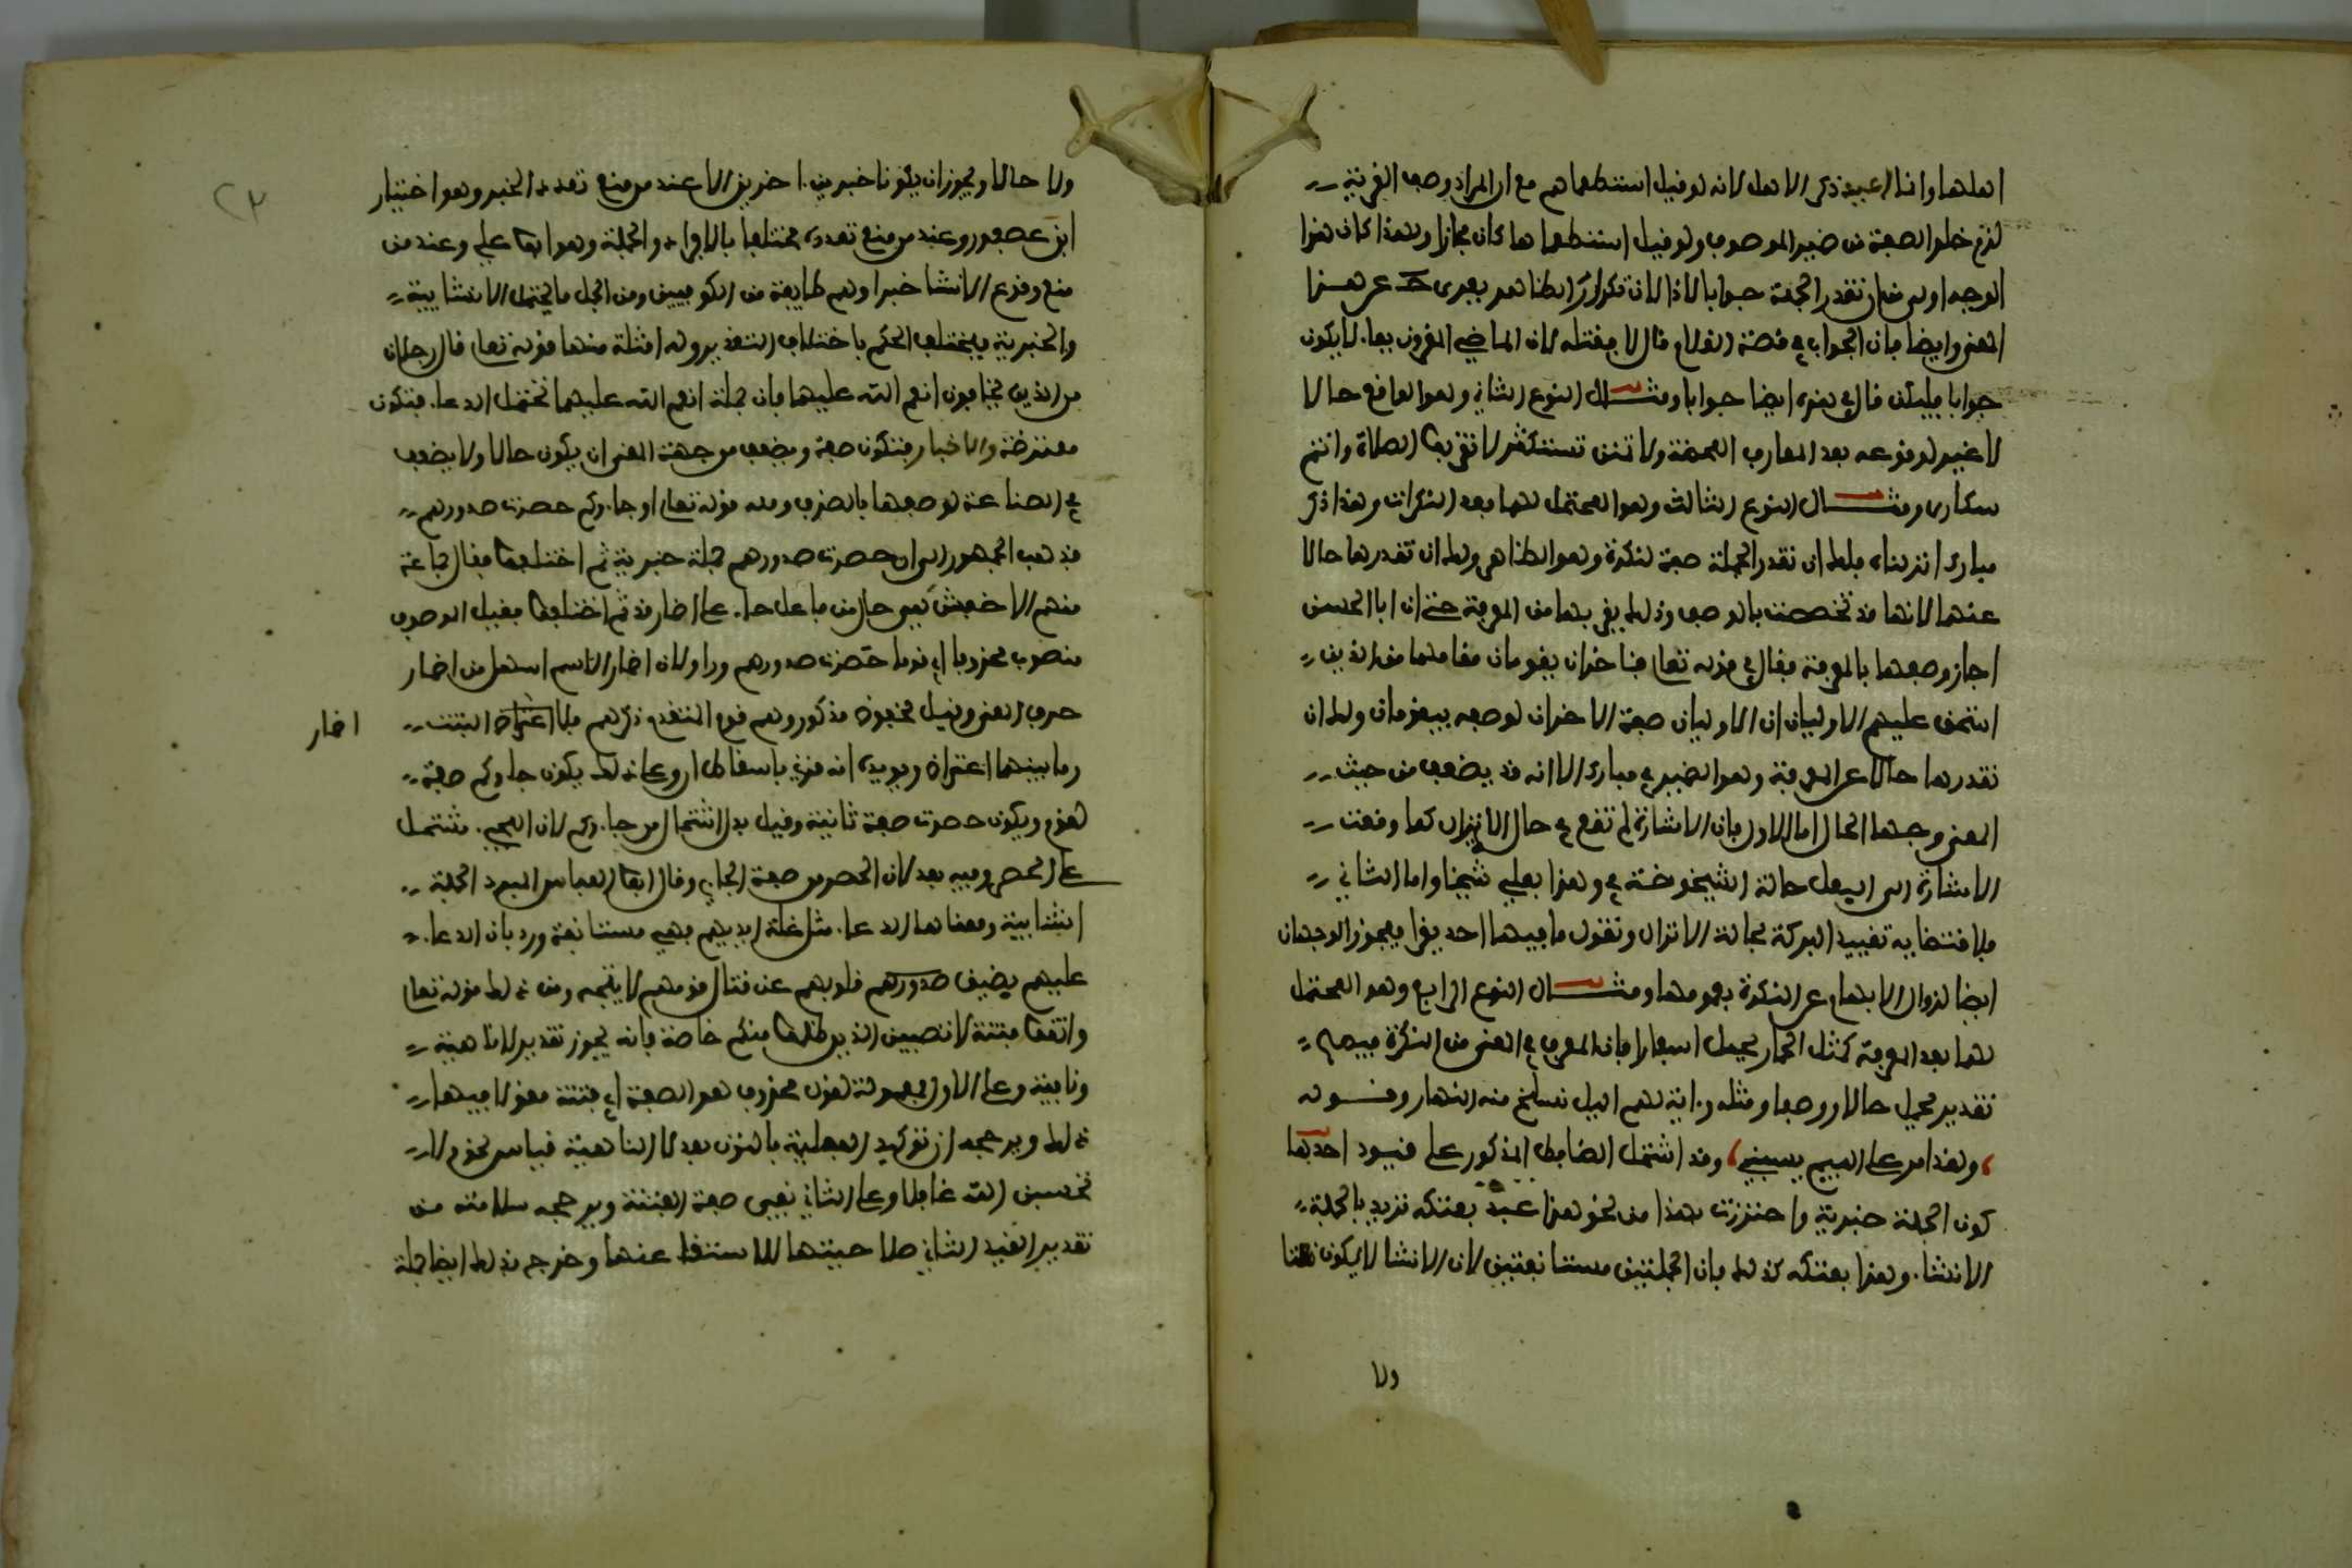 اهلها وانما اعيد ذكر الاهل لانه لو قيل استطعماهم مع ان المراد وصف القرية
لزم خلو الصفة من ضمير الموصوف ولو قيل استطعماها كان مجازا ولهذا كان هذا
الوجه اولى من ان تقدر الجملة جوابا لاذا لان تكرار الظاهر يعرى ح عن هذا
المعنى وايضا فان الجواب في قصة الغلام قال لا فقتله لان الماضي المقرون بفا لا يكون
جوابا فليكن قال في هذه ايضا جوابا ومثال النوع الثاني وهو الواقع حالا
لا غير لوقوعه بعد المعارف المحضة ولا تمنن تستكثر لا تقربوا الصلاة وانتم
سكارى ومثال النوع الثالث وهو المحتمل لهما بعد النكرات وهذا ذكر
مبارك انزلناه فلك ان تقدر الجملة صفة لنكرة وهو الظاهر ولك ان تقدرها حالا
عنها لانها قد تخصصت بالوصف وذلك يقربها من المعرفة حتى ان ابا الحسن
اجاز وصفها بالمعرفة فقال في قوله تعالى فئاخران يقومان مقامهما من الذين
استحق عليهم الاوليان ان الاوليان صفة لاخران لوصفه بيقومان ولك ان
تقدرها حالا عن المعرفة وهو الضمير في مبارك الا انه قد يضعف من حيث
المعنى وجها الحال اما الاول فان الاشارة لم تقع في حال الانزال كما وقعت
الاشارة الى البعل حالة الشيخوخة في وهذا بعلي شيخا واما الثاني
فلاقتضايه تقييد البركة بحالة الانزال وتقول ما فيها احد يقرا فيجوز الوجهان
ايضا لزوال الابهام عن النكرة بعمومها ومثال النوع الرابع وهو المحتمل
لهما بعد المعرفة كمثل الحمار يحمل اسفارا فان المعرف في المعنى من النكرة فيصح
تقدير يحمل حالا ووصفا ومثله واية لهم اليل نسلخ منه النهار وقوله
ولقد امر على اللييم يسبني وقد اشتمل الضابط المذكور على قيود احدها
كون الجملة خبرية واحترزت بهذا من نحو هذا عبد بعتكه تريد بالجملة
الانشا وهذا بعتكه كذلك فان الجملتين مستانفتين لان الانشا لا يكون نعتا
ولا
٢٣
ولا حالا ويجوز ان يكونا خبرين اخرين الا عند من منع تعدد الخبر وهو اختيار
ابن عصفور وعند من منع تعدده مختلفا بالافراد والجملة وهو ابو علي وعند من
منع وقوع الانشا خبرا وهم طايفة من الكوفيين ومن الجمل ما يحتمل الانشايية
والخبرية فيختلف الحكم باختلاف التقدير وله امثلة منها قوله تعالى قال رجلان
من الذين يخافون انعم الله عليهما فان جملة انعم الله عليهما تحتمل الدعا فتكون
معترضة والاخبار فتكون صفة ويضعف من جهة المعنى ان يكون حالا ولا يضعف
في الصناعة لوصفها بالظرف ومنه قوله تعالى او جاءوكم حصرت صدورهم
فذهب الجمهور الى ان حصرت صدورهم جملة خبرية ثم اختلفوا فقال جماعة
منهم الاخفش هي حال من فاعل جا على اضمار قد ثم اختلفوا فقيل الموصوف
منصوب محذوف اي قوما حصرت صدورهم وراوا ان اضمار الاسم اسهل من اضمار
حرف المعنى وقيل مخفوض مذكور وهم قوم المتقدم ذكرهم فلا اضمار البتة
اضمار
وما بينهما اعتراض ويويده انه قري باسقاط او وعلى ذلك يكون جاوكم صفة
لقوم ويكون حصرت صفة ثانية وقيل بدل اشتمال من جاءوكم لان المجي مشتمل
على الحصر وفيه بعد لان الحصر من صفة الجاي وقال ابو العباس المبرد الجملة
انشايية ومعناها الدعا مثل غلت ايديهم فهي مستانفة ورد بان الدعا
عليهم يضيق صدورهم قلوبهم عن قتال قومهم لا يتجه ومن ذلك قوله تعالى
واتقوا فتنة لا تصيبن الذين ظلموا منكم خاصة فانه يجوز تقدير لا ناهية
ونافية وعلى الاول فهي مقولة لقول محذوف هو الصفة اي فتنة مقولا فيها
ذلك ويرجحه ان توكيد الفعل بالنون بعد لا الناهية قياس نحو ولا
تحسبن الله غافلا وعلى الثاني فهي صفة لفتنة ويرجحه سلامته من
تقدير القيد الثاني صلاحيتها للاستغنا عنها وخرج بذلك ايضا جملة